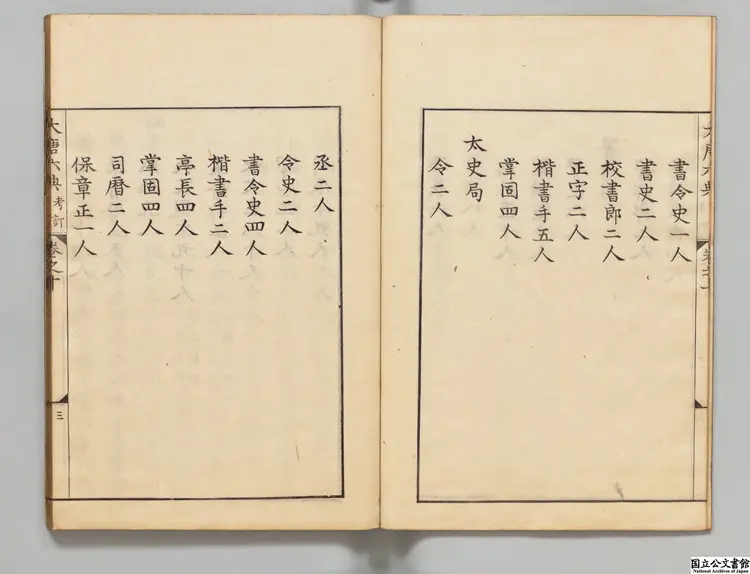 書令史一人
書史二人
校書郎二人
正字二人
楷書手五人
掌固四人
太史局
令二人
丞二人
令史二人
書令史四人
楷書手二人
亭長四人
掌固四人
司曆二人
保章正一人
大唐六典考訂
卷之十
三
国立公文書館
National Archives of Japan